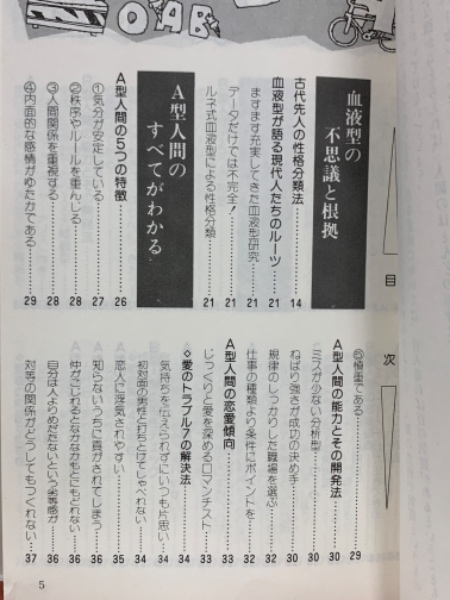 OAB
目次
血液型の
不思議と根拠
古代先人の性格分類法……14
血液型が語る現代人たちのルーツ……21
ますます充実してきた血液型研究……21
データだけでは不完全!……21
ルネ式血液型による性格分類……21
A型人間の
すべてがわかる
A型人間の5つの特徴……26
①気分が安定している……27
②秩序やルールを重んじる……28
③人間関係を重視する……28
④内面的な感情がゆたかである……29
⑤慎重である……29
A型人間の能力とその開発法……30
ミスが少ない分析型……30
ねばり強さが成功の決め手……30
規律のしっかりした職場を選ぶ……32
仕事の種類より条件にポイントを……32
A型人間の恋愛傾向……33
じっくりと愛を深めるロマンチスト……33
◇愛のトラブル7の解決法……34
気持ちを伝えられずにいつも片思い……34
初対面の異性と打ちとけてしゃべれない……34
恋人に浮気されやすい……35
知らないうちに貢がされてしまう……36
仲がこじれるとなかなかもとにもどれない……36
自分は人よりめだたないという劣等感が……36
対等の関係がどうしてもつくれない……37
5